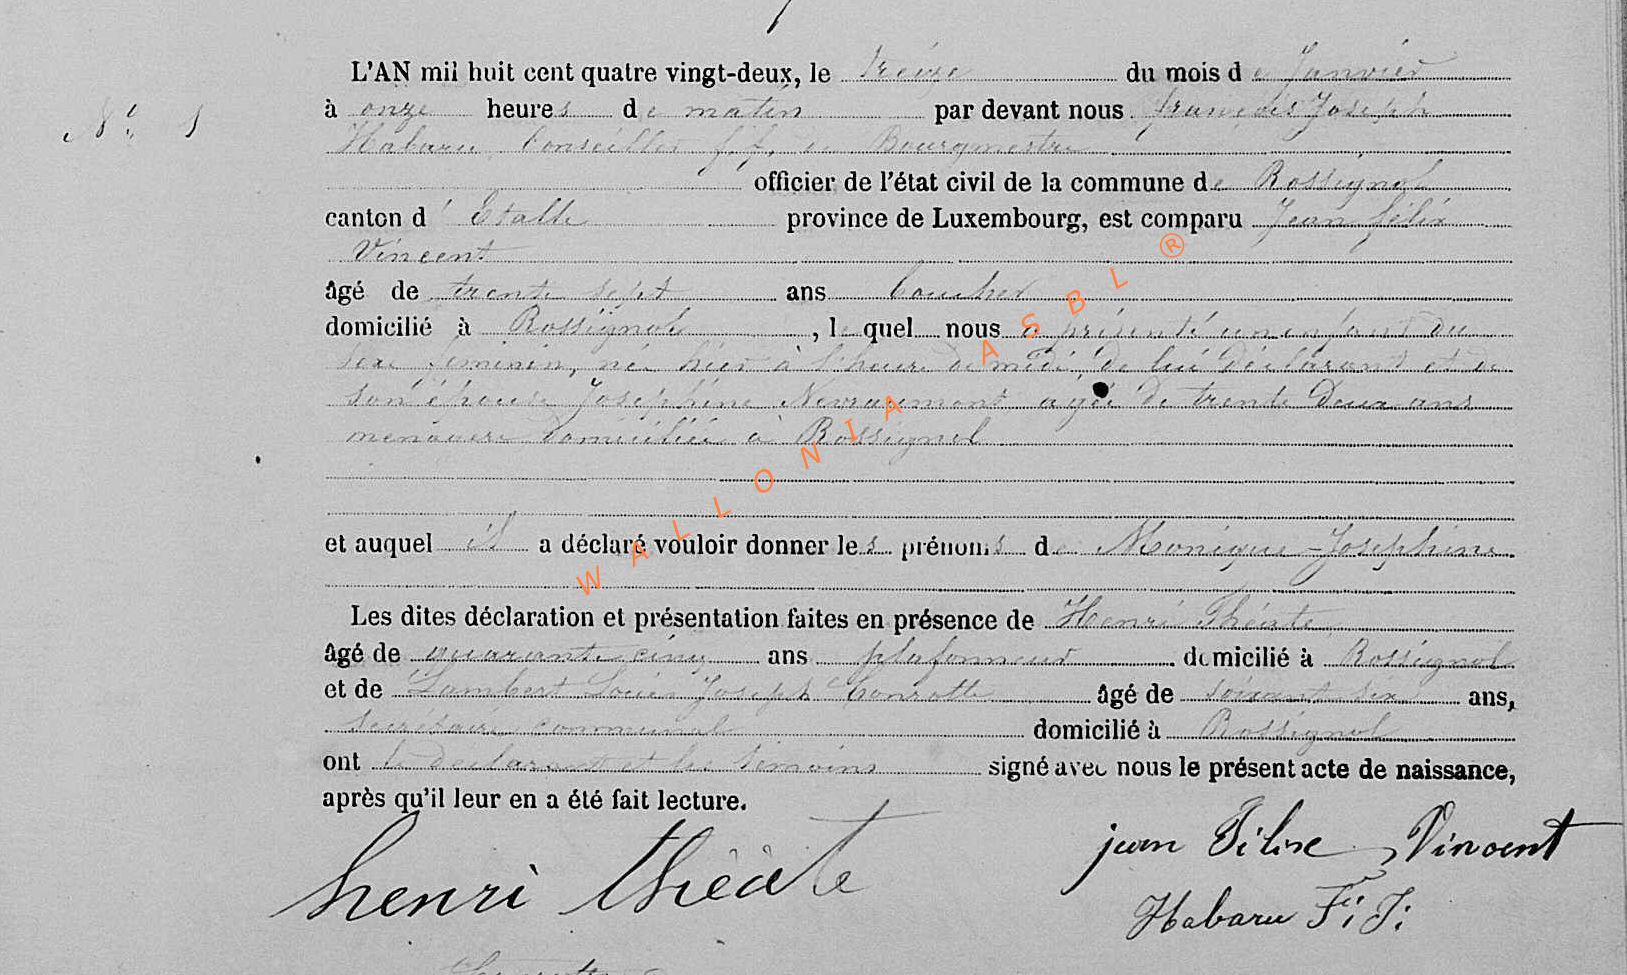 L'AN mil huit cent quatre vingt-deux, le treize du mois de Janvier
N° 1
à onze heures de matin par devant nous françois Joseph
Habaru, Conseiller f.f. de Bourgmestre
officier de l'état civil de la commune de Rossignol
canton d'Etalle province de Luxembourg, est comparu Jean félix
Vincent
âgé de trente sept ans
domicilié à Rossignol, lequel nous a présenté un enfant du
sexe féminin, née hier à l'heure de midi, de lui déclarant et de
son épouse Joséphine Nevraumont agée de trente deux ans
ménagère domiciliée à Rossignol
et auquel il a déclaré vouloir donner les prénoms de Monique-Joséphine.
Les dites déclaration et présentation faites en présence de Henri Théate
âgé de quarante cinq ans plafonneur domicilié à Rossignol
et de Lambert Louis Joseph Conrotte âgé de soixante six ans,
secrétaire communal domicilié à Rossignol
ont le déclarant et les témoins signé avec nous le présent acte de naissance,
après qu'il leur en a été fait lecture.
henri thèate
jean Féline Vincent
Habaru F. F.
WALLONIA ASBL ®